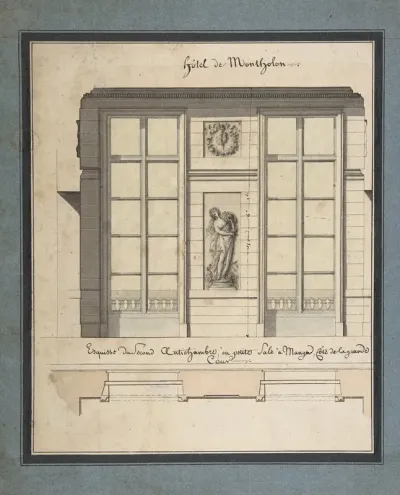 hôtel de Montholon
Esquisse du Second Antichambre, ou petite Sale à Manger Côté de la grande
Cour